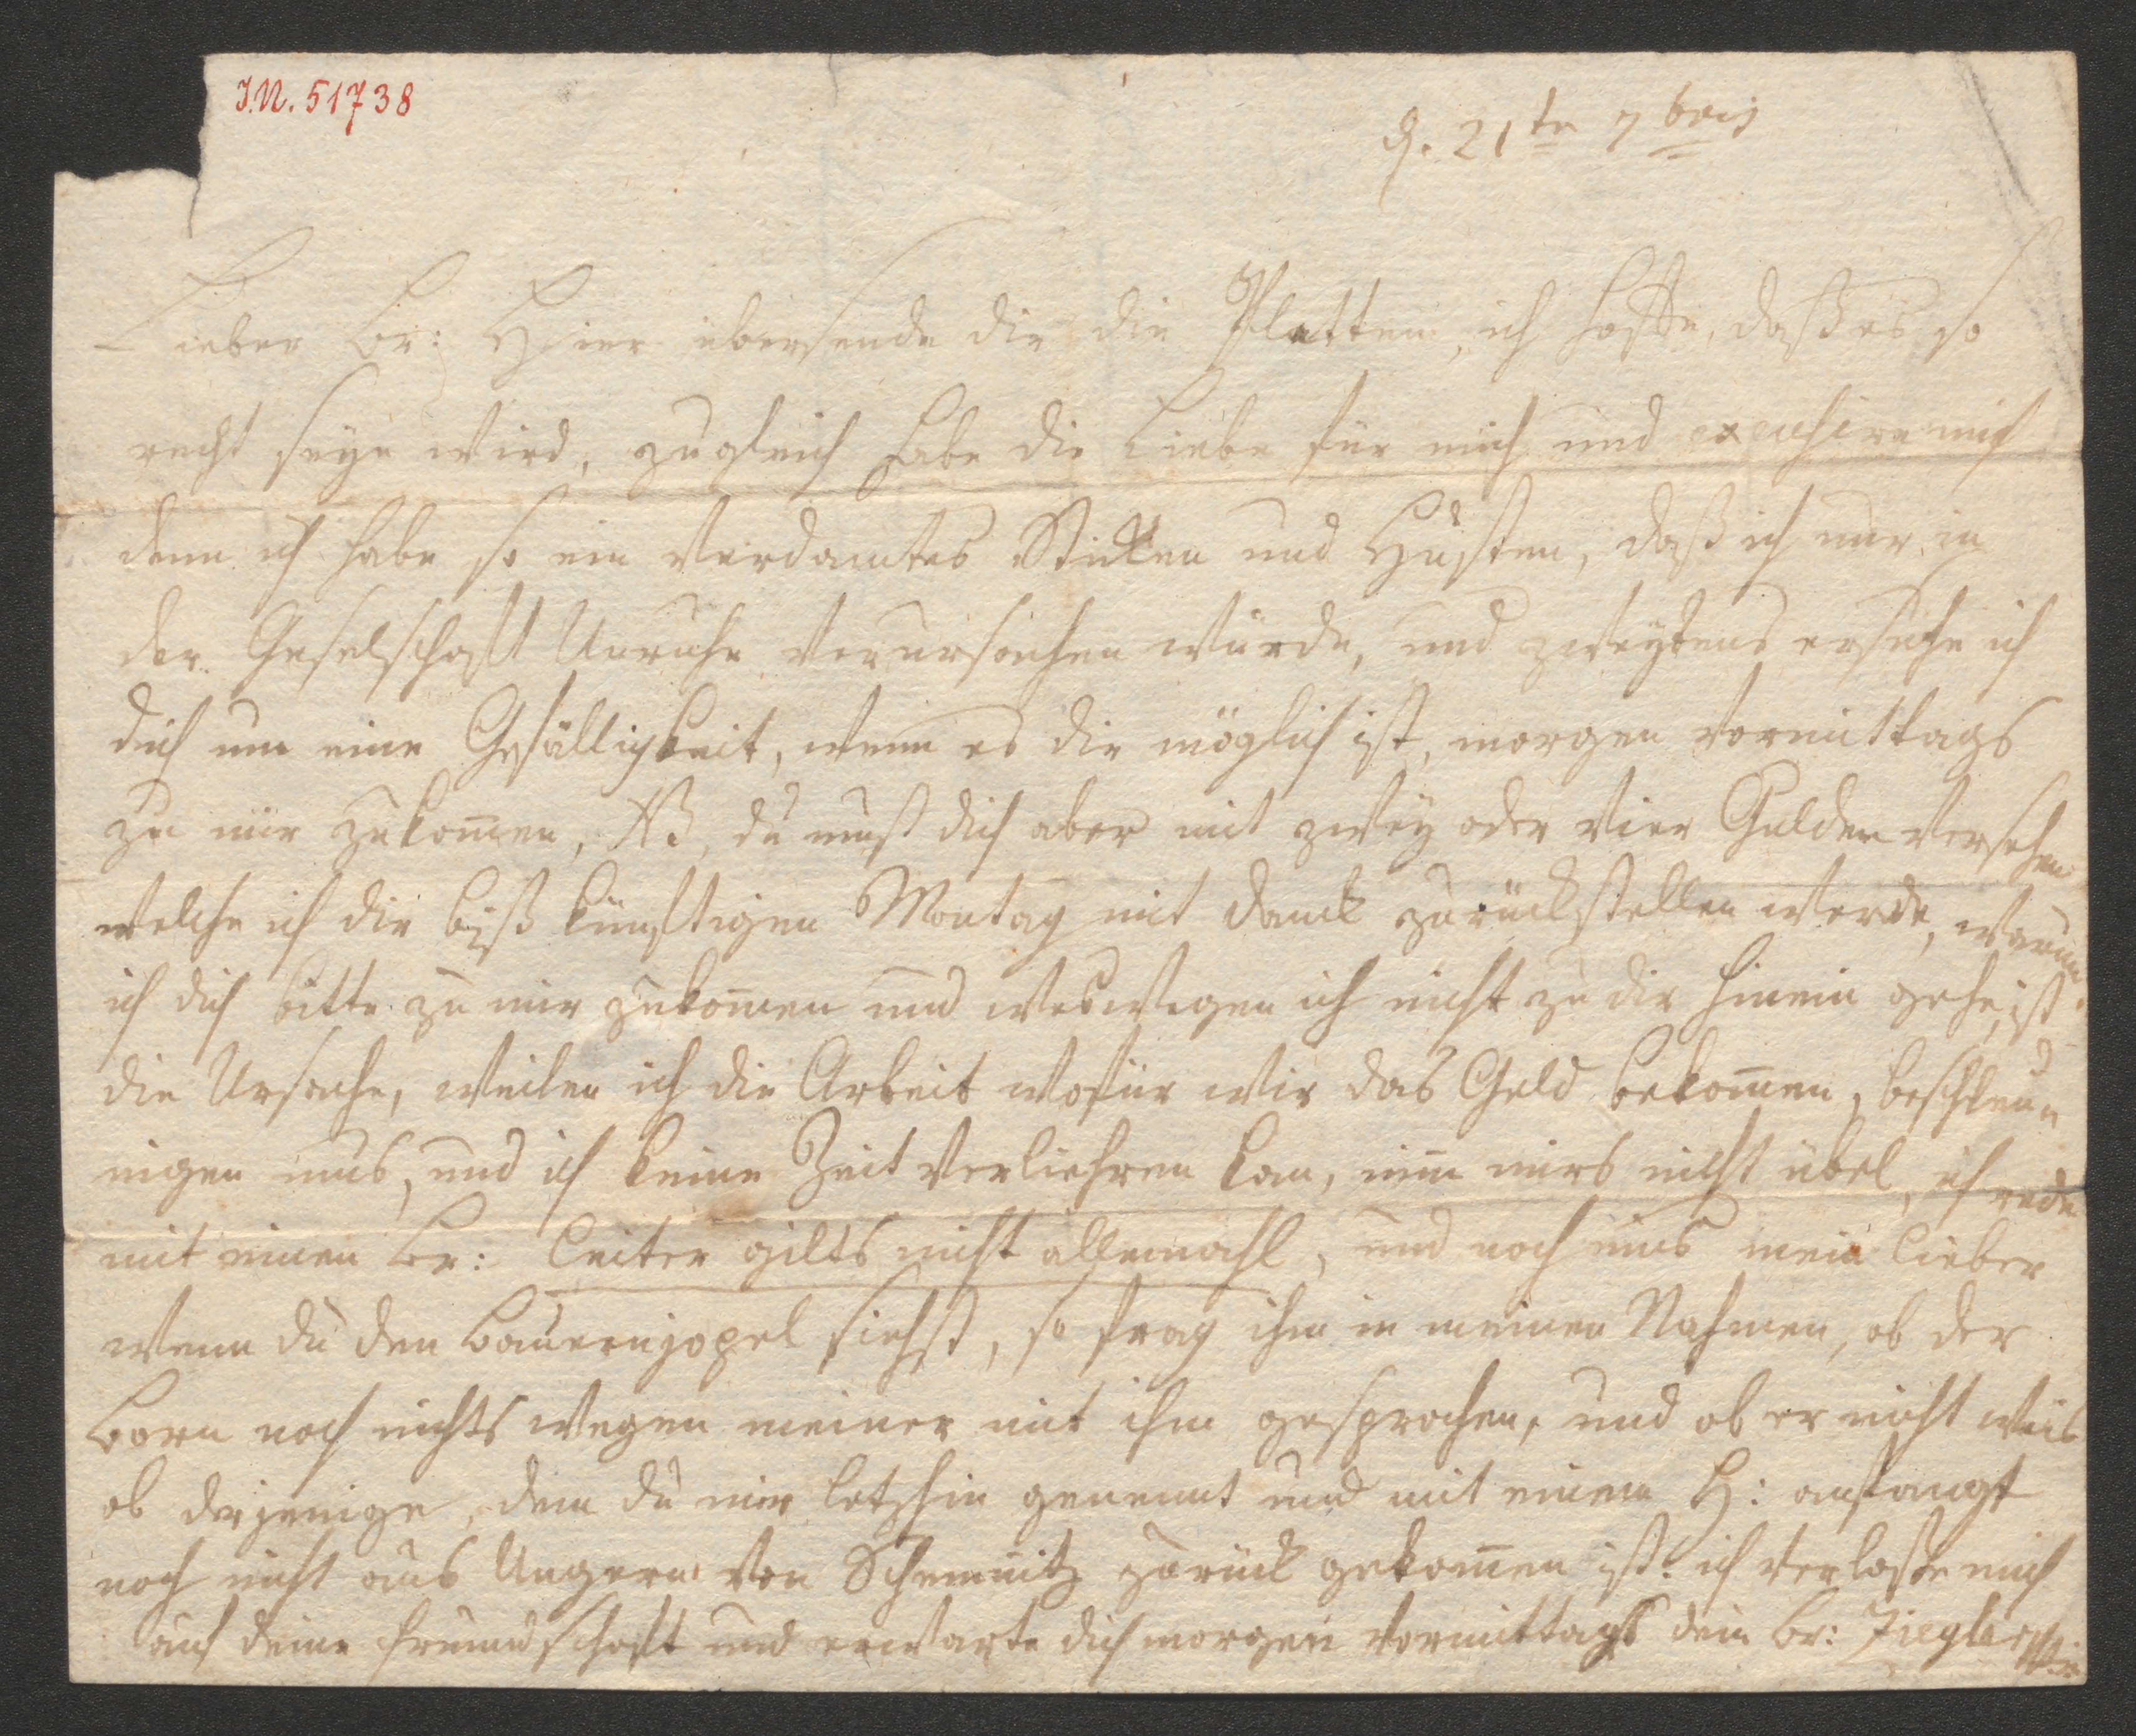 I.N. 51738
d. 21te 7bris
Lieber Br: Hier übersende dir die Platten, ich hoffe, daß es so
recht seyn wird, zugleich habe die Liebe für mich und excusire mich
denn ich habe so ein verdamtes Sticken und Husten, daß ich nur in
der Geselschaft Unruhe verursachen würde, und zweytens ersuche ich
dich um eine Gefälligkeit, wenn es dir möglich ist, morgen vormittags
zu mir zukom̅en, NB, du must dich aber mit zwey oder vier Gulden versehen
welche ich dir biß künftigen Montag mit Danck zurückstellen werde, warum
ich dich bitte zu mir zukom̅en und weswegen ich nicht zu dir hinein gehe, ist
die Ursache, weilen ich die Arbeit wofür wir das Geld bekom̅en, beschleu-
nigen mus, und ich keine Zeit verliehren kan, nim̅ mirs nicht übel, ich rede
mit einen Br: leiter gilts nicht allemahl, und noch eins mein lieber
wenn du den Bauernjopel siehst, so frag ihm in meinen Nahmen, ob der
Born noch nichts wegen meiner mit ihm gesprochen, und ob er nicht weis
ob derjenige, dem du mir letzhin genennt und mit einem H: anfangt
noch nicht aus Ungern von Schemnitz zurück gekom̅en ist. ich verlasse mich
auf deine freundschaft und erwarte dich morgen vormittags dein Br: Ziegler